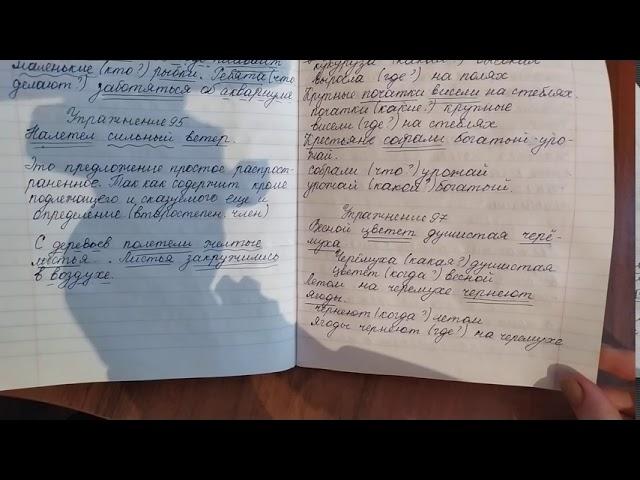 маленькие (кто?) рыбки. Ребята (что
делают?) заботяться об аквариуме
Упражнение 95
Налетел сильный ветер.
Это предложение простое распрост-
раненное. Так как содержит кроме
подлежащего и сказуемого еще и
определение (второстепен. член)
С деревьев полетели желтые
листья. Листья закружились
в воздухе.
кукуруза (какая?) высокая
выросла (где?) на полях
Крупные початки висели на стеблях.
початки (какие?) крупные
висели (где?) на стеблях
Крестьяне собрали богатый уро-
жай.
собрали (что?) урожай
урожай (какой?) богатый.
Упражнение 97
Весной цветет душистая черё-
муха
Черёмуха (какая?) душистая
цветет (когда?) весной
Летом на черемухе чернеют
ягоды.
чернеют (когда?) летом
ягоды чернеют (где?) на черемухе